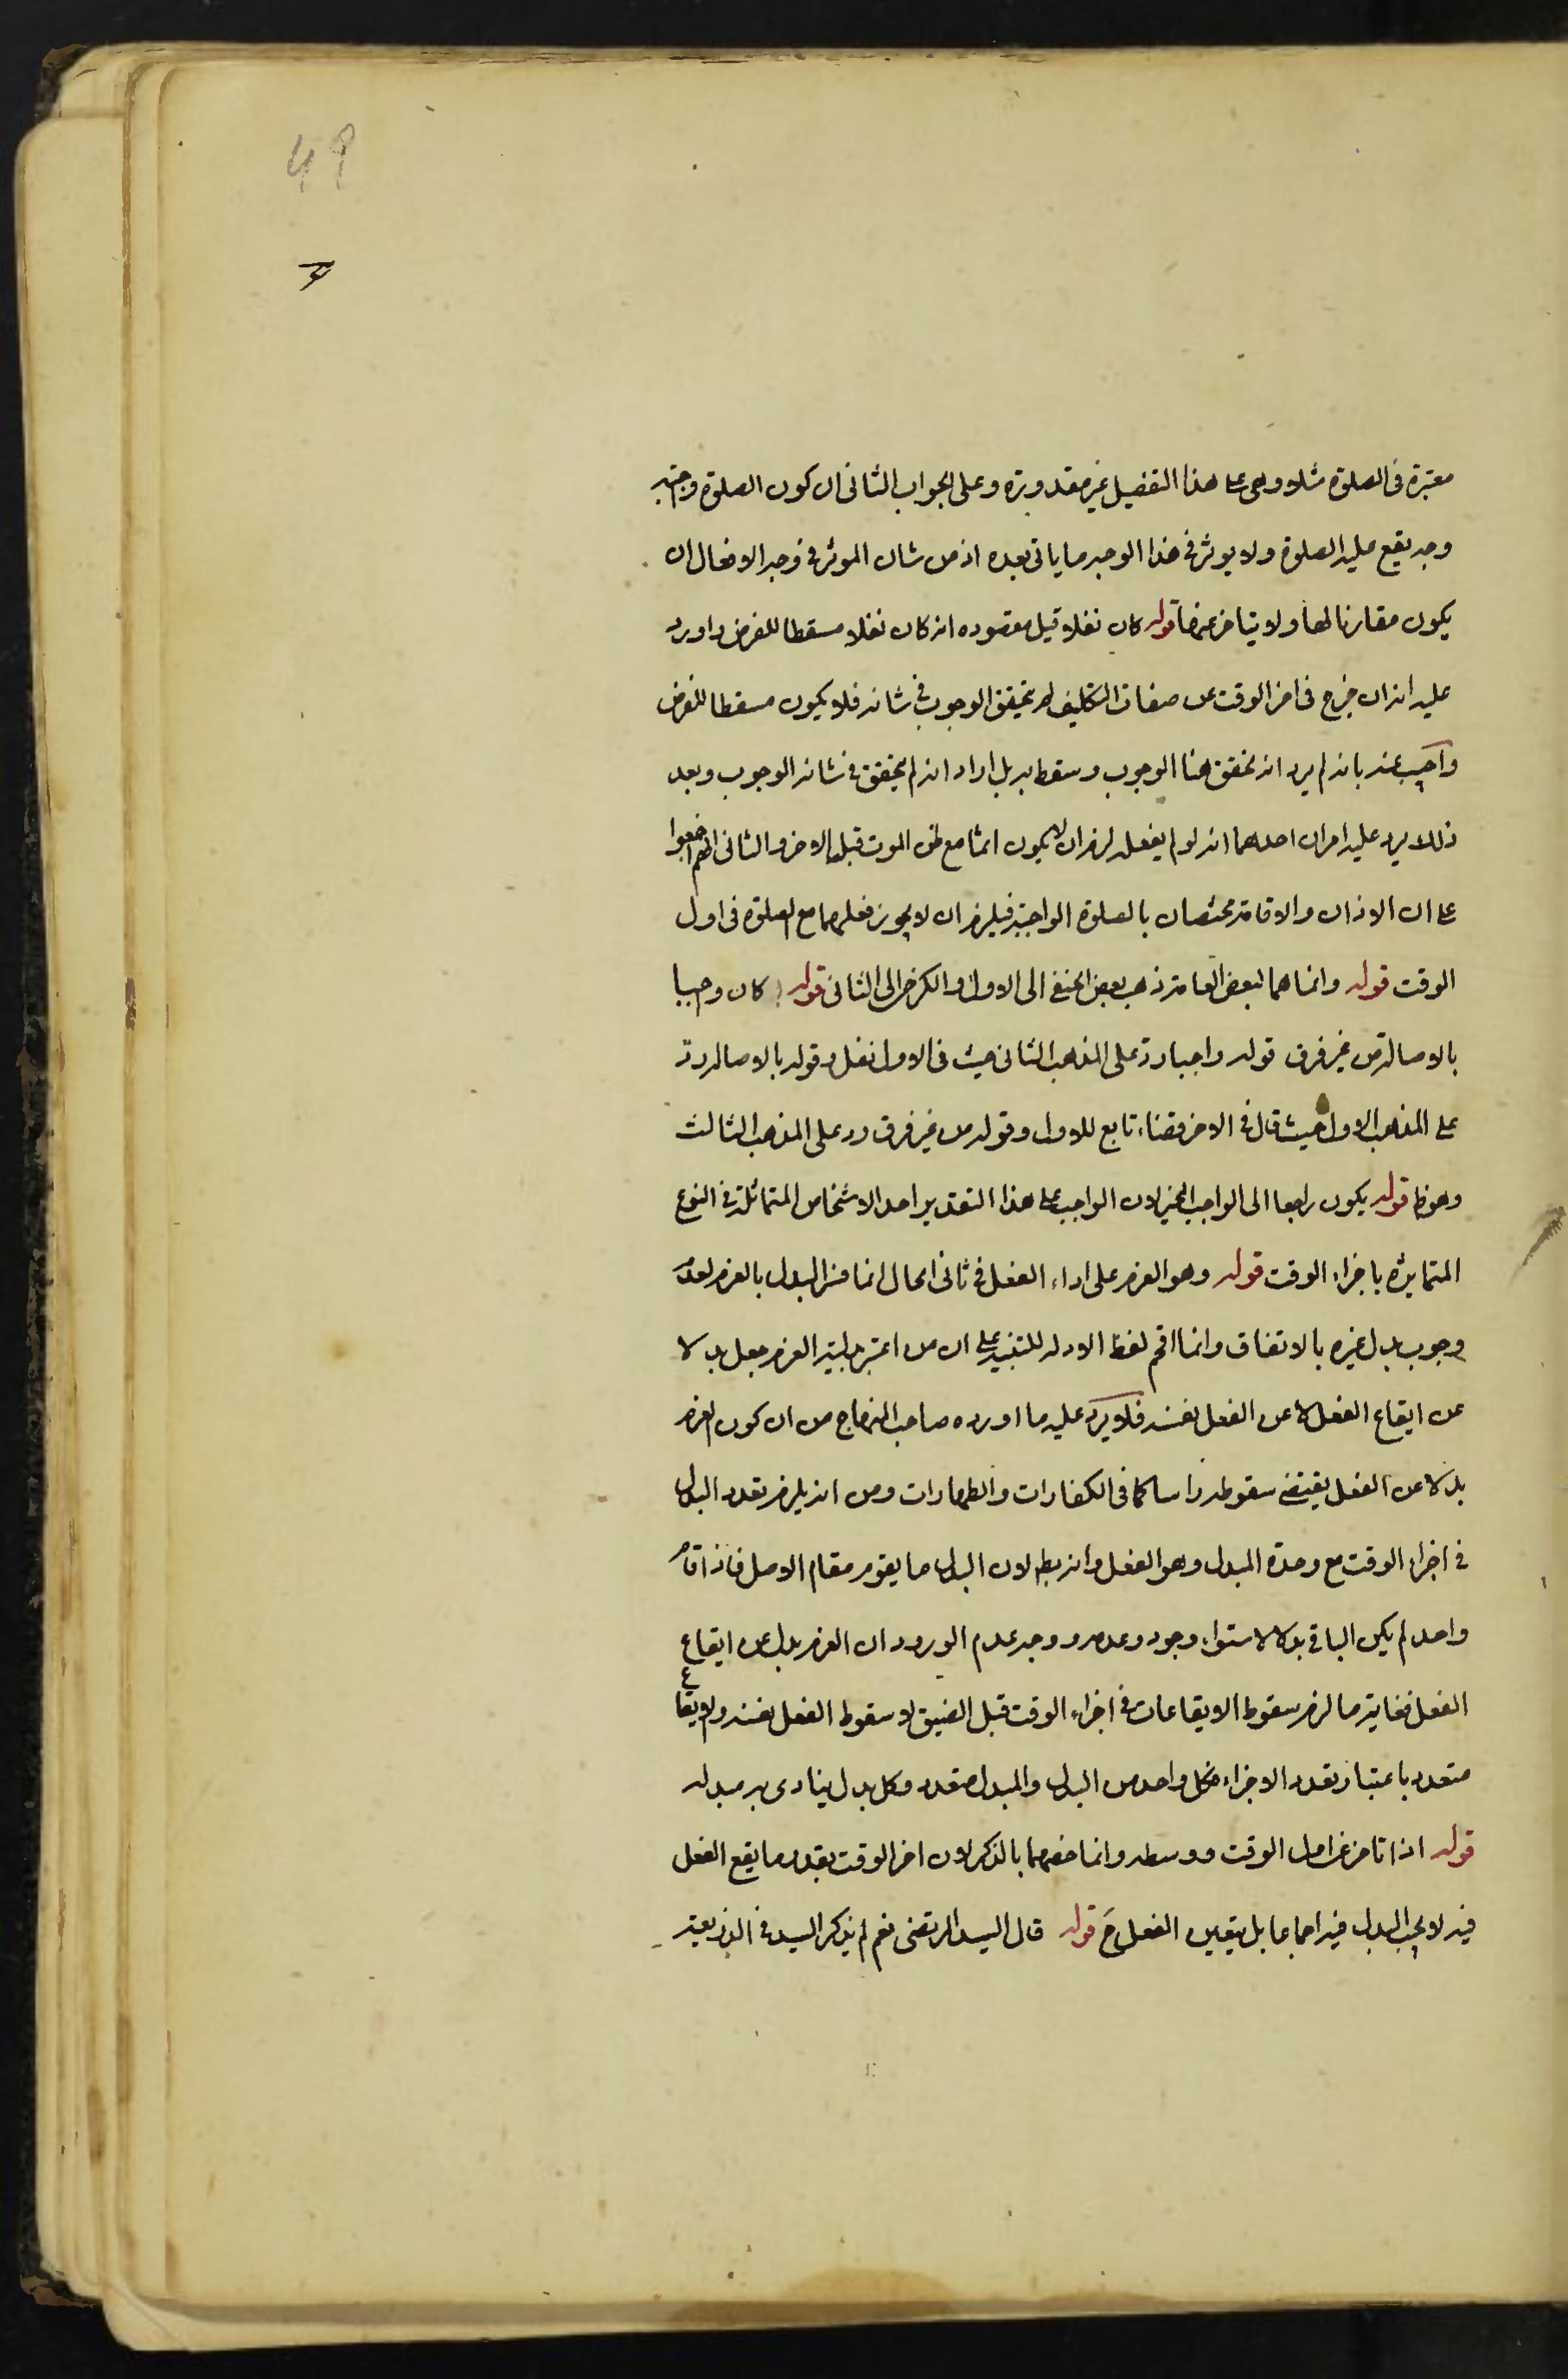 49
معتبرة فى الصلوة مثلا وهى على هذا التفصيل غير مقدورة وعلى الجواب الثانى ان كون الصلوة واجبة
وجه يقع عليه الصلوة ولا يوثر فى هذا الوجه ما ياتى بعده اذ من شان الموثر فى وجه الافعال ان
يكون مقارنا لها ولا يتاخر عنها قوله كان نفلا قيل مقصوده انه كان نفلا مسقطا للفرض واورد
عليه انه ان خرج فى اخر الوقت عن صفات التكليف لم يتحقق الوجوب فى شانه فلا يكون مسقطا للفرض
واجيب عنه بانه لم يرد انه تحقق هنا الوجوب وسقط به بل اراد انه لم يتحقق فى شانه الوجوب وبعد
ذلك يرد عليه امران احدهما انه لو لم يفعله لزم ان لا يكون اثما مع ظن الموت قبل الاخر والثانى انهم اجمعوا
على ان الاذان والاقامة مختصان بالصلوة الواجبة فيلزم ان لا يجوز فعلهما مع الصلوة فى اول
الوقت قوله وانما هما لبعض العامة ذهب بعض الحنفى الى الاول والكرخى الى الثانى قوله كان واجبا
بالاصالة من غير فرق قوله واجبا رد على المذهب الثانى حيث فى الاول نفل وقوله بالاصالة رد
على المذهب الاول حيث قال فى الاخر قضاء تابع للاول وقوله من غير فرق رد على المذهب الثالث
وهو ظ قوله يكون راجعا الى الواجب المخير لان الواجب على هذا التقدير احد الاشخاص المتماثلة فى النوع
المتمايزة باجزاء الوقت قوله وهو العزم على اداء الفعل فى ثانى الحال انما فسر البدل بالعزم لعدم
وجوب بدل غيره بالاتفاق وانما اقحم لفظ الاداء للتنبيه على ان من اعتبر بدلية العزم جعل بدلا
عن ايقاع الفعل لا عن الفعل نفسه فلا يرد عليه ما اورده صاحب المنهاج من ان كون العزم
بدلا عن الفعل يقتضى سقوطه راسا كما فى الكفارات والطهارات ومن انه يلزم تعدد البدل
فى اجزاء الوقت مع وحدة المبدل وهو الفعل وانه بط لان البدل ما يقوم مقام الاصل فاذا قام
واحد لم يكن الباقى بدلا لاستواء وجوده وعدمه ووجه عدم الورود ان العزم بدل عن ايقاع
الفعل فغاية ما لزم سقوط الايقاعات فى اجزاء الوقت قبل الضيق لا سقوط الفعل نفسه والايقاع
متعدد باعتبار تعدد الاجزاء فكل واحد من البدل والمبدل متعدد وكل بدل يتادى به مبدله
قوله اذا تاخر عن اول الوقت ووسطه وانما خصهما بالذكر لان اخر الوقت بقدر ما يقع الفعل
فيه لا يجب البدل فيه اجماعا بل يتعين الفعل ح قوله قال السيد المرتضى نعم لم يذكر السيد فى الذريعة